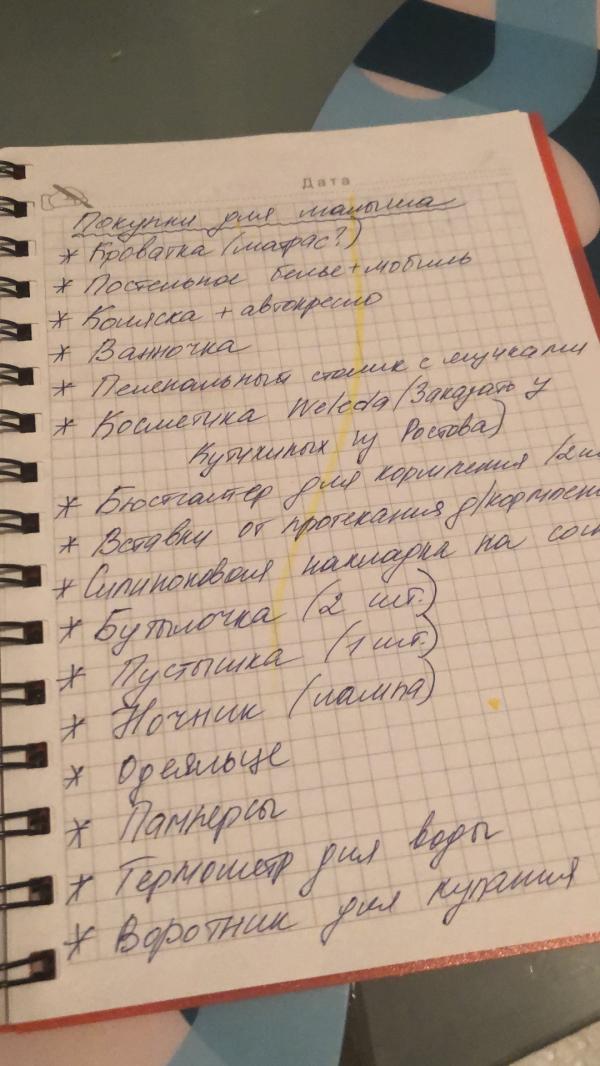 Дата
Покупки для малыша
* Кроватка (матрас?)
* Постельное белье + мобиль
* Коляска + автокресло
* Ванночка
* Пеленальный столик с ящиками
* Косметика Weleda (Заказать у
Кутихиных из Ростова)
* Бюстгалтер для кормления (2 шт
* Вставки от протекания д/кормлен
* Силиконовая накладка на сос
* Бутылочка (2 шт.)
* Пустышка (1 шт.)
* Ночник (лампа)
* Одеяльце
* Памперсы
* Термометр для воды
* Воротник для купания